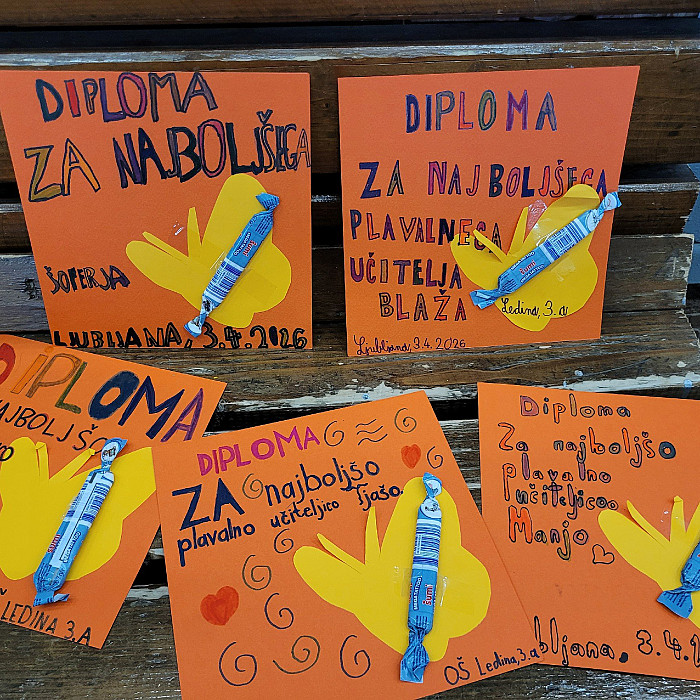 DIPLOMA
ZA NAJBOLJŠEGA
ŠOFERJA
LJUBLJANA, 3.4.2026
DIPLOMA
ZA NAJBOLJŠEGA
PLAVALNEGA
UČITELJA
BLAŽA
Ledina, 3.a
Ljubljana, 3.4.2026
DIPLOMA
NAJBOLJŠO
LEDINA 3.A
DIPLOMA
ZA najboljšo
plavalno učiteljico Tjašo.
OŠ Ledina, 3.a
Diploma
Za najboljšo
plavalno
učiteljico
Manjo
bljana, 3.4.2
šumi
šumi
šumi